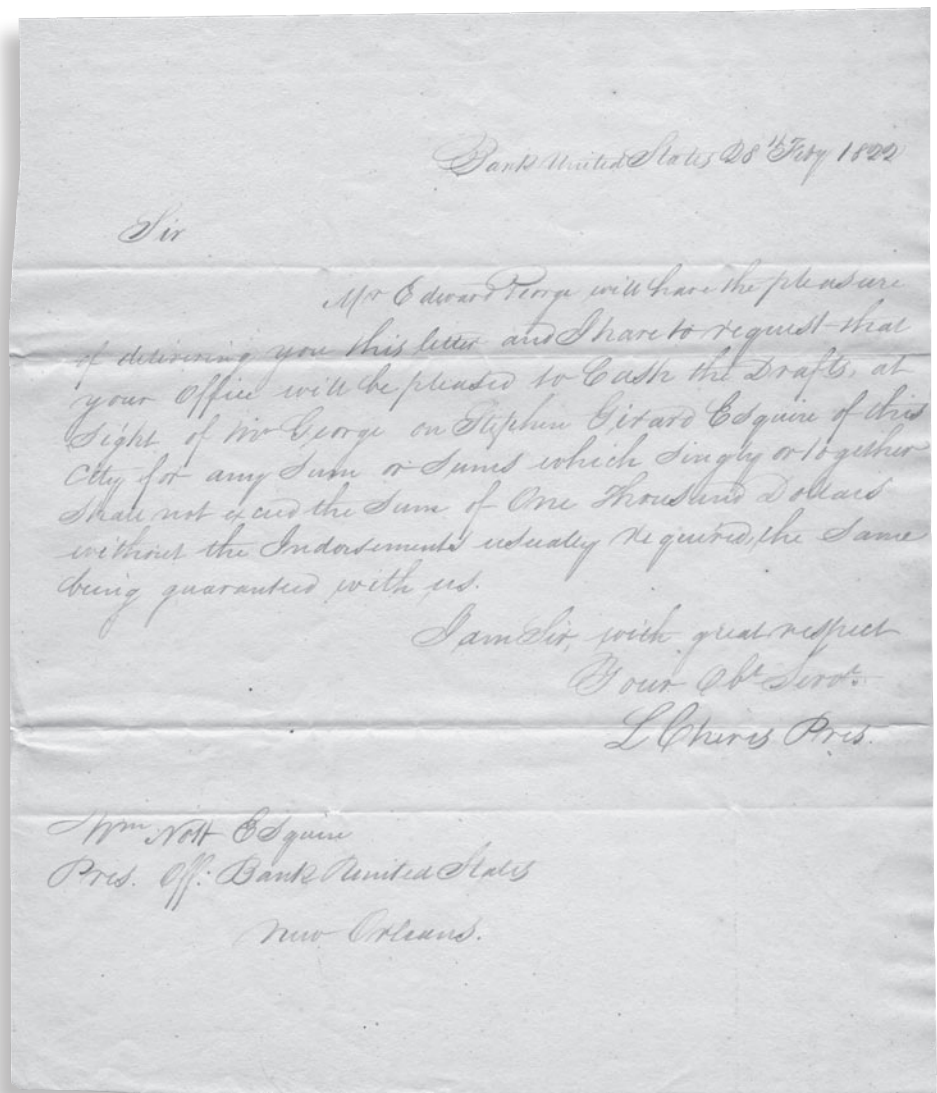 Bank United States 28th Feby 1822
Sir
Mr Edward George will have the pleasure
of delivering you this letter and I have to request that
your Office will be pleased to Cash the Drafts, at
Sight of Mr George on Stephen Girard Esquire of this
City for any Sum or Sums which Singly or together
Shall not exceed the Sum of One Thousand Dollars
without the Indorsements usually required, the Same
being guaranteed with us.
I am Sir, with great respect
Your Obt Servt.
L Cheves Pres.
Wm Nott Esquire
Pres. Off: Bank United States
New Orleans.